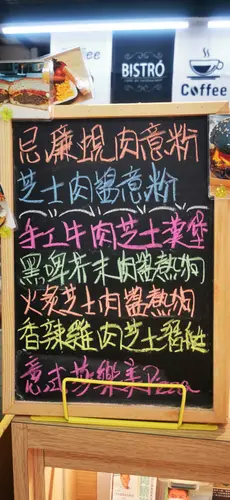 Coffee
BISTRÓ
Coffee
尼廉蜆肉意粉
芝士肉醬意粉
手工牛肉芝士漢堡
黑啤芥末肉醬熱狗
火炙芝士肉醬熱狗
香辣雞肉芝士窩
意式莎樂美Pizza